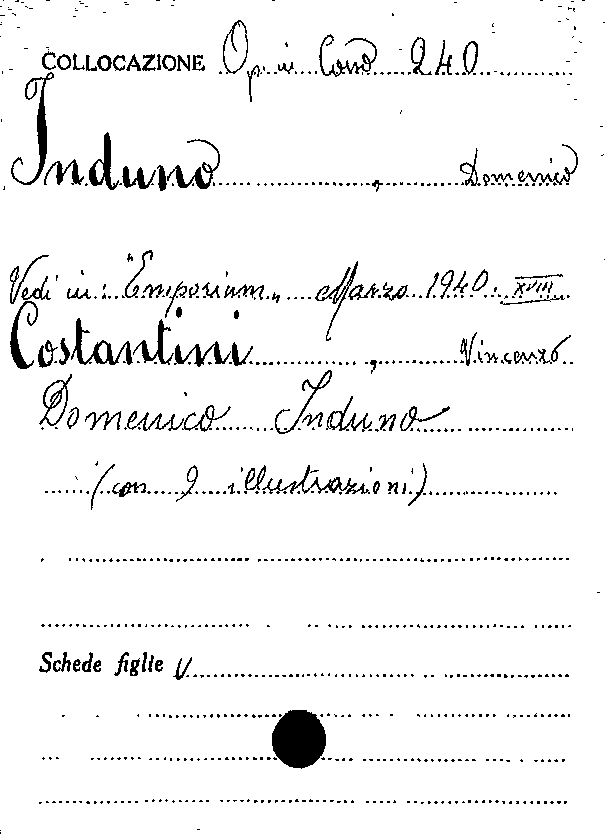 COLLOCAZIONE Op. in Corso 240
Induno, Domenico
Vedi in: "Emporium" Marzo 1940. XVIII
Costantini, Vincenzo
Domenico Induno
(con 9 illustrazioni)
Schede figlie V